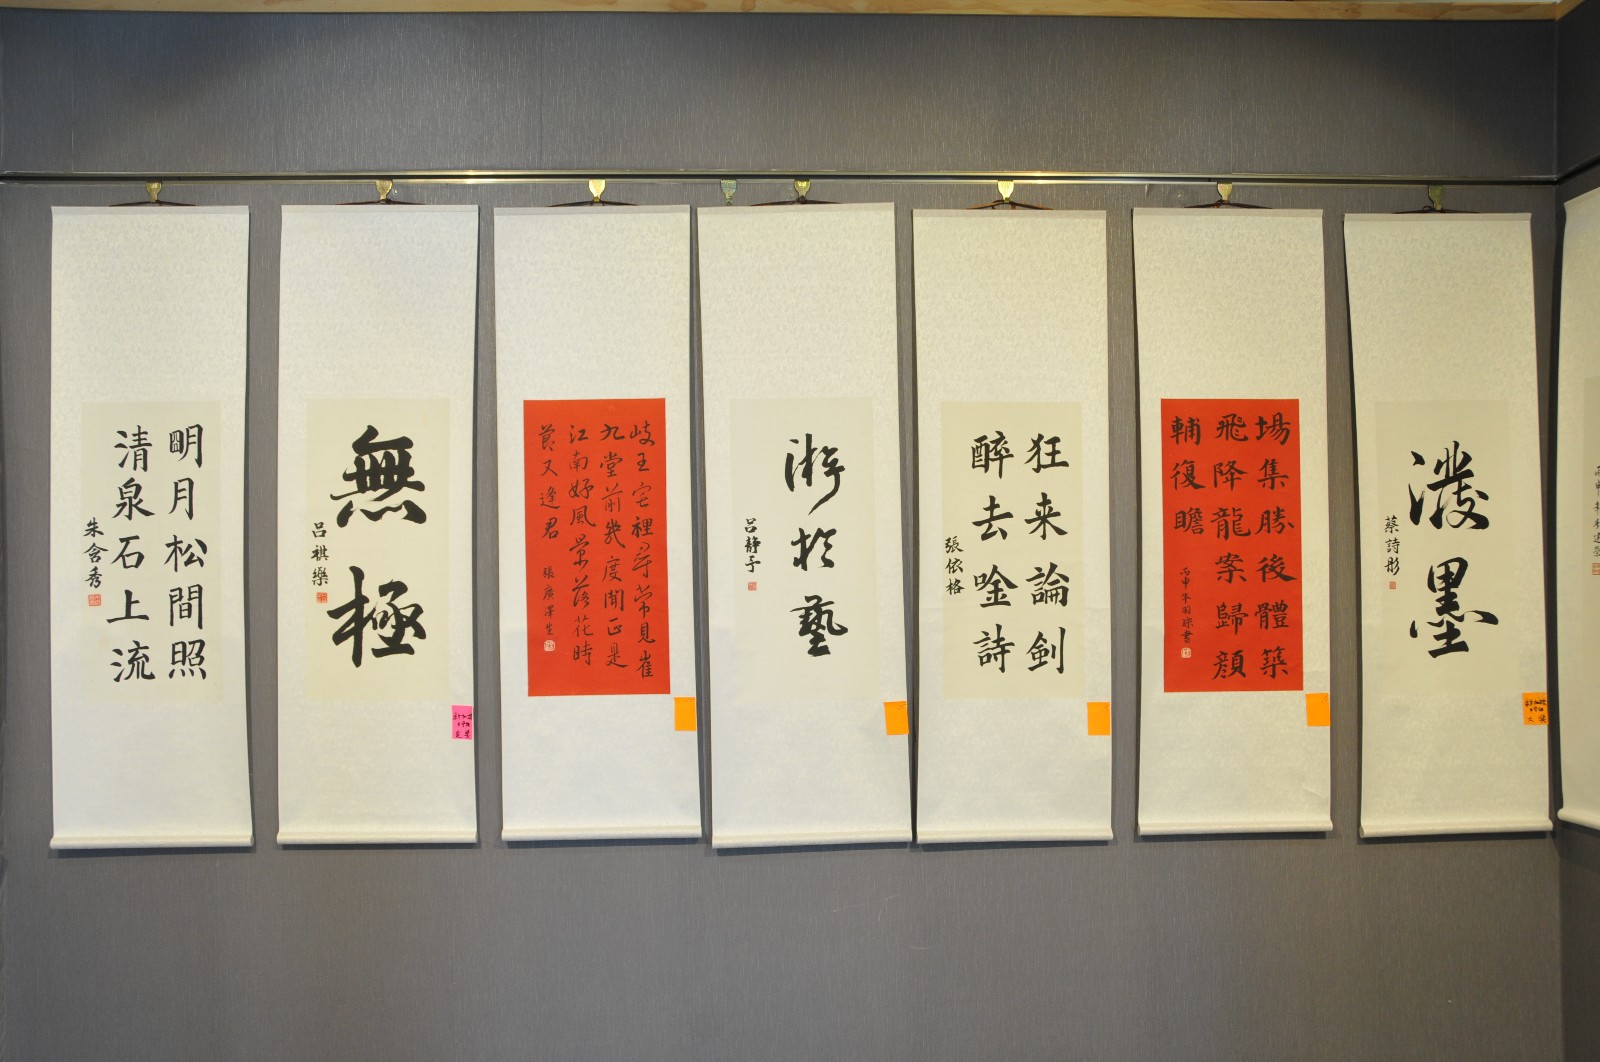 明月松間照
清泉石上流
朱含秀
無極
呂祺樂
岐王宅裡尋常見崔
九堂前幾度聞正是
江南好風景落花時
節又逢君
張廣澤
游於藝
呂靜予
狂来論劍
醉去唫詩
張依格
場集勝後體築
飛降龍案歸顏
輔復瞻
丙申年羽琮書
潑墨
蔡詩彤